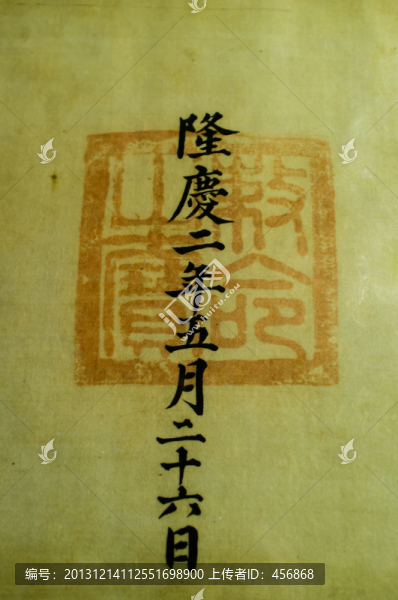 隆慶二年五月二十六日
敕命
之寶
編号：20131214112551698900 上传者ID：456868